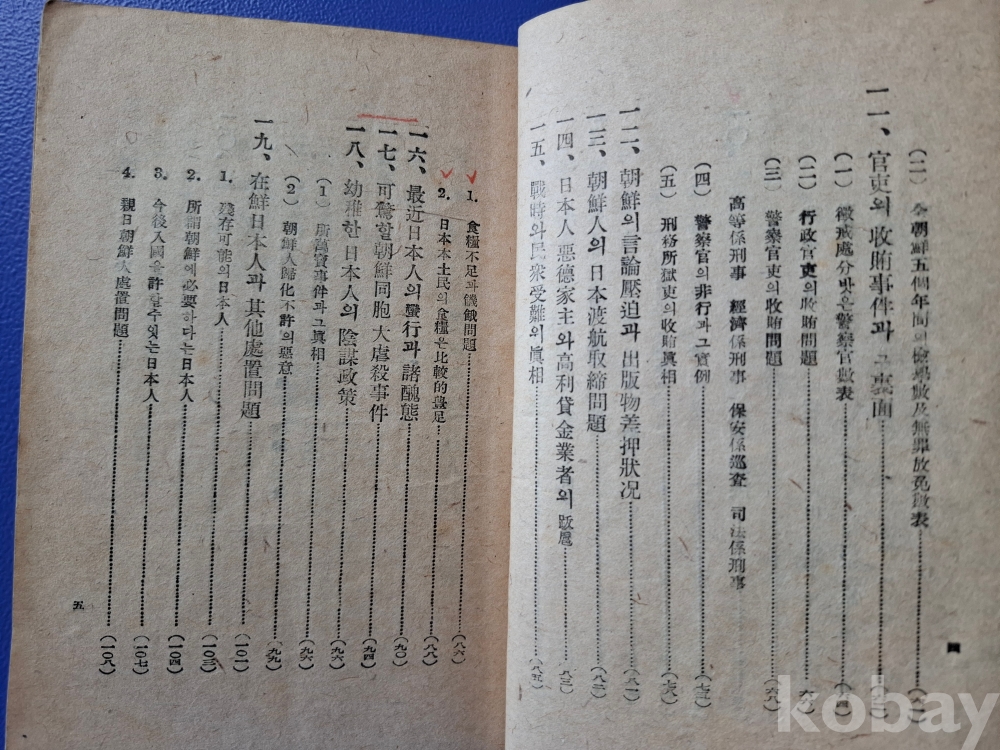 (二) 全朝鮮五個年間의檢擧數及無罪放免數表
一一、官吏의收賄事件과그裏面
(一) 徵戒處分밧은警察官數表
(二) 行政官吏의收賄問題
(三) 警察官吏의收賄問題
高等係刑事 經濟係刑事 保安係巡査 司法係刑事
(四) 警察官의非行과그實例
(五) 刑務所獄吏의收賄眞相
一二、朝鮮의言論壓迫과出版物差押狀况 (八一)
一三、朝鮮人의日本渡航取締問題 (八二)
一四、日本人惡德家主와高利貸金業者의跋扈 (八三)
一五、戰時와民衆受難의眞相 (八五)
四
1. 食糧不足과饑餓問題 (八六)
2. 日本本土民의食糧은比較的豊足 (八八)
一六、最近日本人의蠻行과諸醜態 (九〇)
一七、可驚할朝鮮同胞大虐殺事件 (九四)
一八、幼稚한日本人의陰謀政策 (九六)
(1) 所萬寶事件과그眞相 (九六)
(2) 朝鮮人歸化不許의惡意 (九九)
一九、在鮮日本人과其他處置問題 (一〇一)
1. 殘存可能의日本人 (一〇三)
2. 所謂朝鮮에必要하다는日本人 (一〇四)
3. 今後入國을許할수잇는日本人 (一〇七)
4. 親日朝鮮人處置問題 (一〇八)
五
kobay